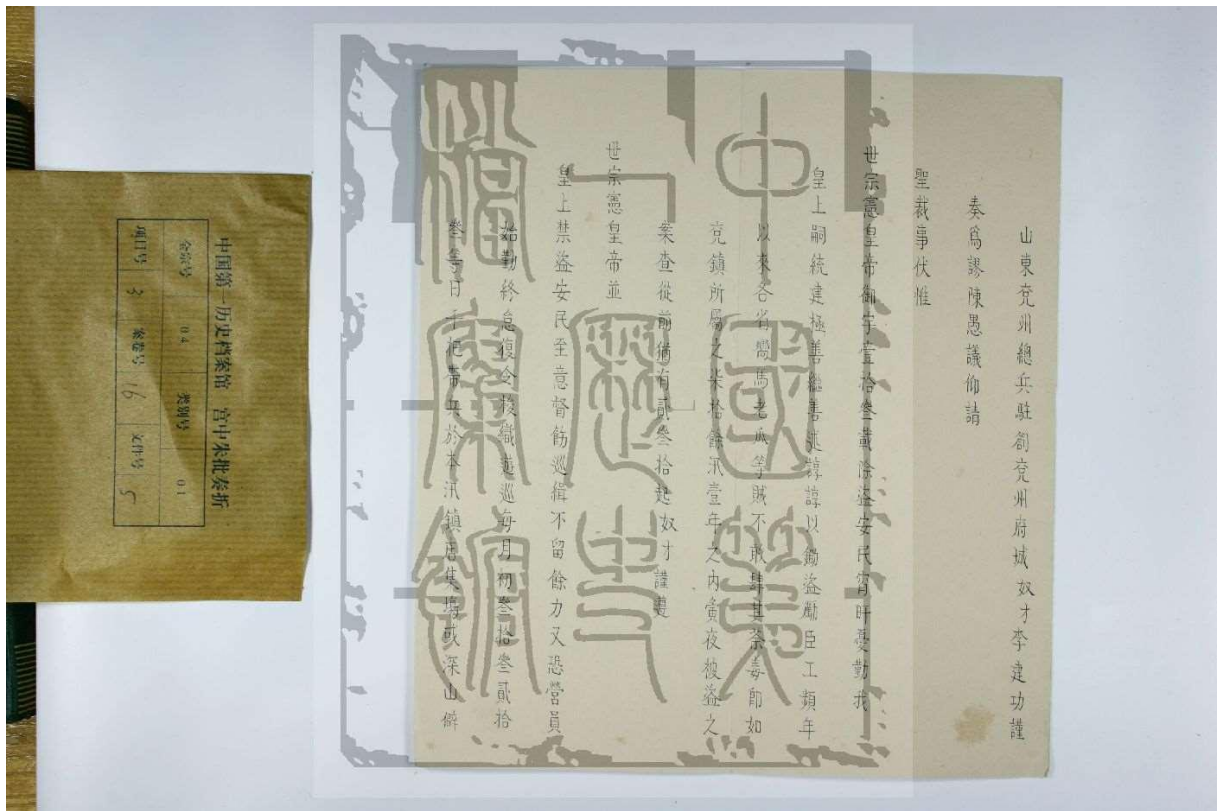 山東兗州總兵駐劄兗州府城奴才李建功謹
奏爲謬陳愚議仰請
聖裁事伏惟
世宗憲皇帝御宇壹拾叁載除盜安民宵旰憂勤我
皇上嗣統建極善繼善述諄諄以鋤盜勵臣工頻年
以來各省響馬老瓜等賊不敢肆其荼毒即如
兗鎮所屬之柒拾餘汛壹年之內黃夜被盜之
案查從前猶有貳叁拾起奴才謹體
世宗憲皇帝並
皇上禁盜安民至意督飭巡緝不留餘力又恐營員
始勤終怠復令梭織遊巡每月初叁拾叁貳拾
叁等日千把帶兵於本汛鎮店集塲或深山僻
中国第一历史档案馆 宫中朱批奏折
全宗号 04 类别号 01
项目号 3 案卷号 16 文件号 5
中國第一歷史檔案館